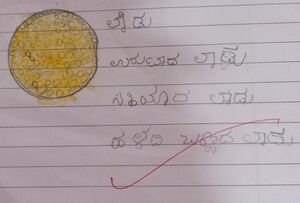 ಲಾಡು
ಉರುಟಾದ ಲಾಡು
ಸಿಹಿಯಾದ ಲಾಡು
ಹಳದಿ ಬಣ್ಣದ ಲಾಡು